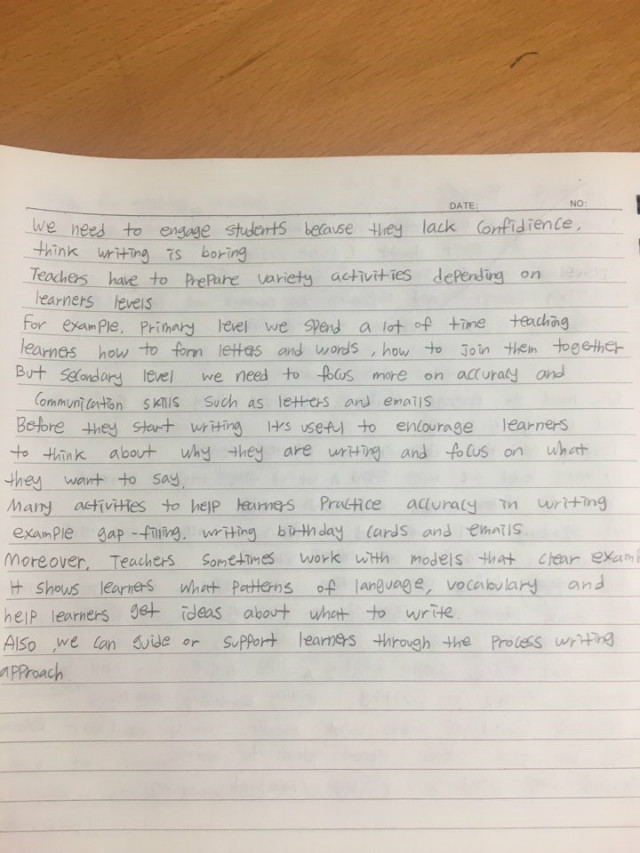 DATE: NO:
We need to engage students because they lack confidience,
think writing is boring
Teachers have to prepare variety activities depending on
learners levels
For example, Primary level we spend a lot of time teaching
learners how to form letters and words, how to join them together
But secondary level we need to focus more on accuracy and
communication skills such as letters and emails
Before they start writing It's useful to encourage learners
to think about why they are writing and focus on what
they want to say.
Many activities to help learners practice accuracy in writing
example gap-filling, writing birthday cards and emails
Moreover, Teachers sometimes work with models that clear examp
It shows learners what patterns of language, vocabulary and
help learners get ideas about what to write.
Also, we can guide or support learners through the process writing
approach